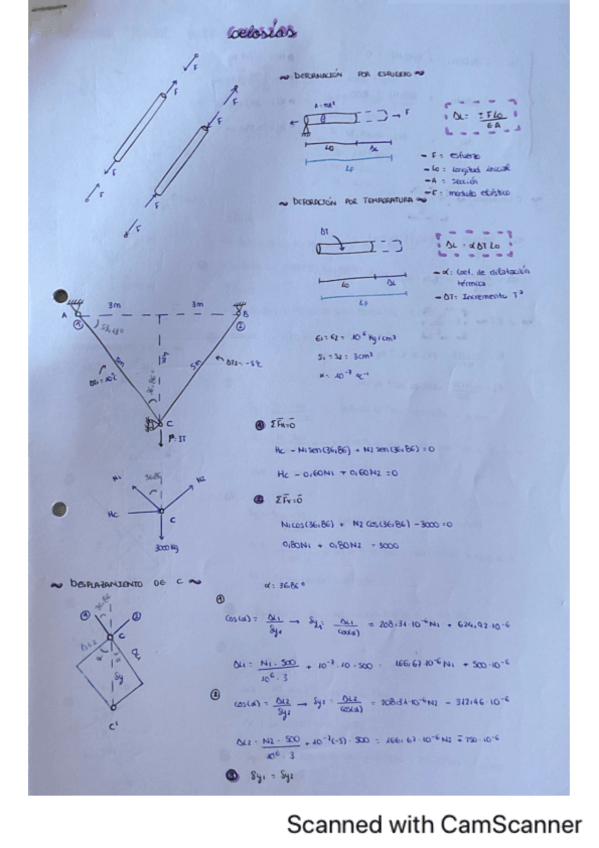 celosías
~ DEFORMACIÓN POR ESFUERZO ~
F
F
F
F
F
F
F
ΔL = ± F L0 / E A
L0
ΔL
Lf
- F: esfuerzo
- L0: Longitud inicial
- A: sección
- E: modulo elástico
~ DEFORACIÓN POR TEMPERATURA ~
ΔT
ΔL = α ΔT L0
L0
ΔL
Lf
- α: Coef. de dilatación
térmica
- ΔT: Incremento Tª
3m
3m
A
B
①
②
5m
5m
36,86º
C
E1 = E2 = 10^6 Kg/cm²
S1 = S2 = 3cm²
① ΣFx = 0
Hc - N1 sen(36,86) + N2 sen(36,86) = 0
Hc - 0,60N1 + 0,60N2 = 0
② ΣFy = 0
N1 cos(36,86) + N2 cos(36,86) - 3000 = 0
0,80N1 + 0,80N2 = 3000
N1
36,86
N2
Hc
C
3000 Kg
~ DESPLAZAMIENTO DE C ~
α = 36,86º
①
cos(α) = ΔL1 / δy1 → δy1 = ΔL1 / cos(α) = 208,34·10^-6 N1 + 624,92·10^-6
ΔL1 = N1 · 500 / 10^6 · 3 + 10^-7 · 10 · 500 = 166,67·10^-6 N1 + 500·10^-6
②
cos(α) = ΔL2 / δy2 → δy2 = ΔL2 / cos(α) = 208,34·10^-6 N2 - 312,46·10^-6
ΔL2 = N2 · 500 / 10^6 · 3 + 10^-7 (-5) · 500 = 166,67·10^-6 N2
③ δy1 = δy2
①
36,86
②
C
ΔL2
ΔL1
α
δy
C'
Scanned with CamScanner